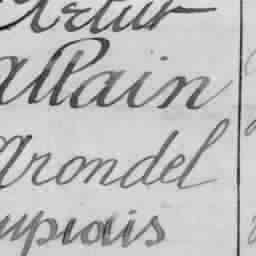 Artur
allain
arondel
upiais